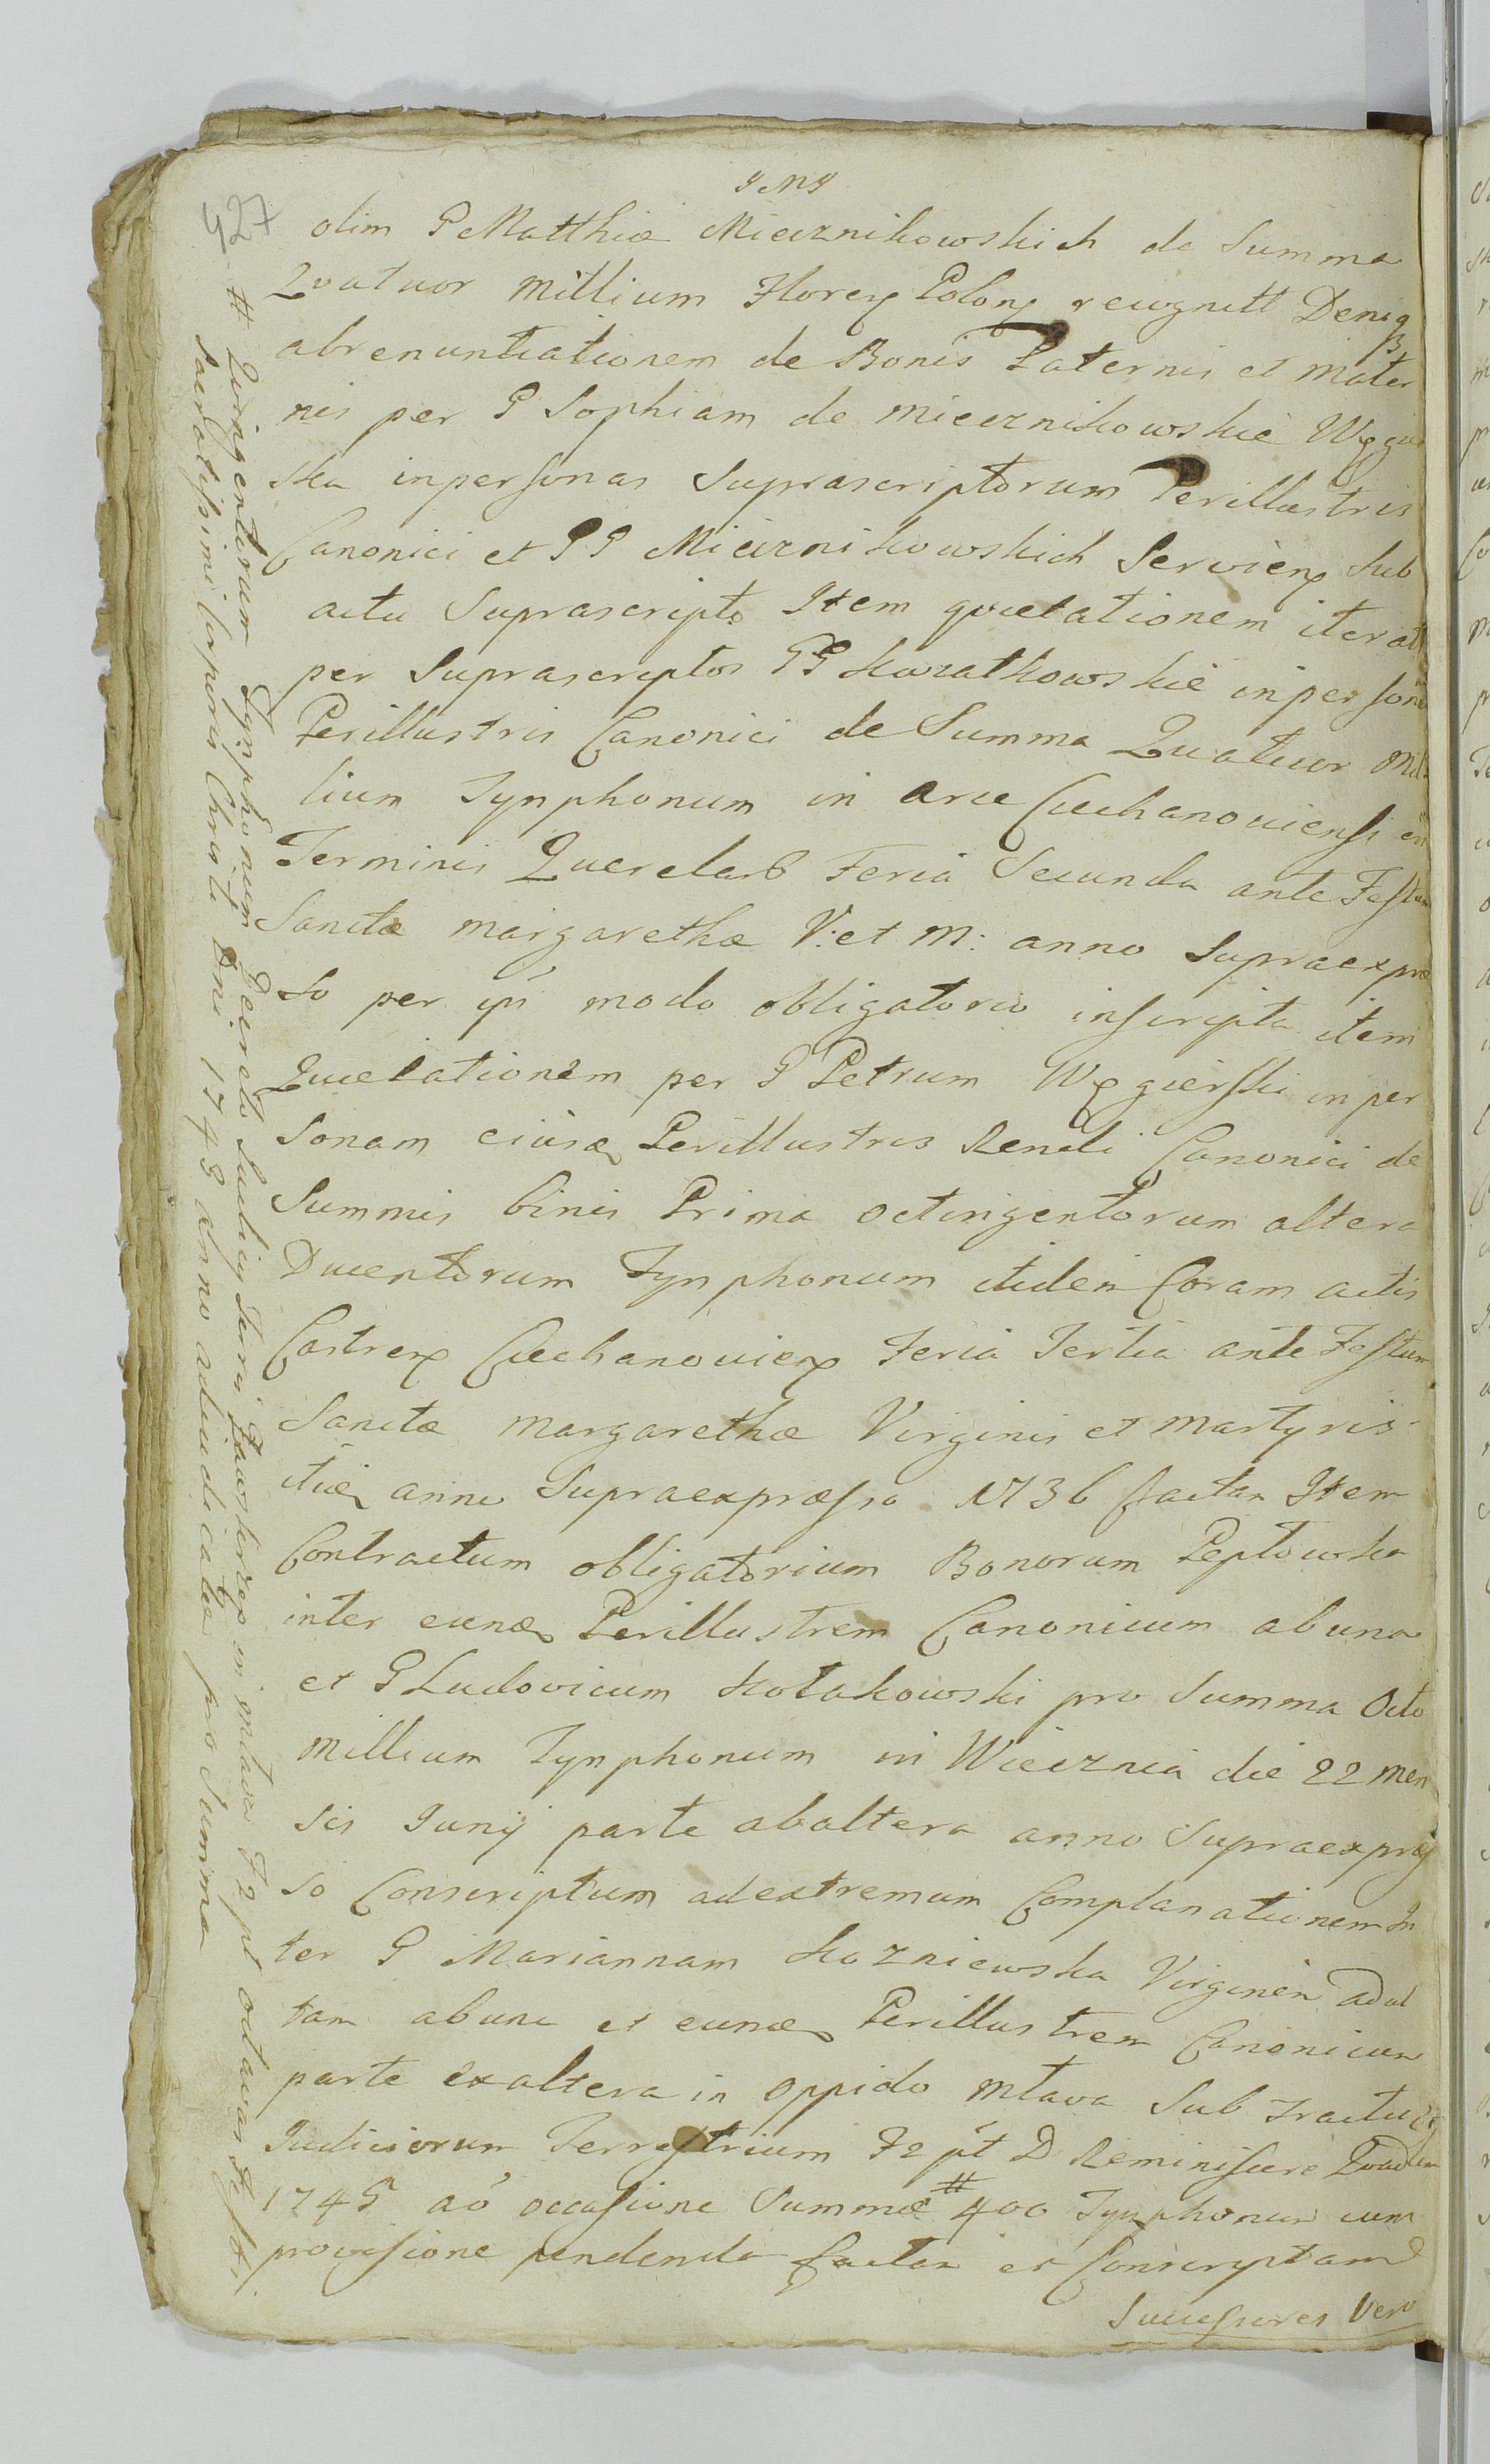 JMJ
427
olim P Matthiæ Miecznikowskich de Summa
Quatuor millium Floreꝝ Polonꝝ recognitt Deniqꝫ
abrenuntiationem de Bonis Paternis et mater
nis per P Sophiam de Miecznikowskie Węgier
ska inpersonas Suprascriptorum Perillustris
Canonici et PP Miecznikowskich Servienꝝ Sub
actu Suprascripto Item quietationem iterat
per Suprascriptos PP inpersonā
Perillustris Canonici de Summa Quatuor Mil
lium Tynphonum in arce Ciechanoviensi in
Terminis Querelarꝫ Feria Secunda ante Festum
Sanctæ Margarethæ V: et M: anno Supraexpræ
so per modo obligatorio inscripta item
Quietationem per P Petrum Węgierski inper
sonam eiusdꝫ Perillustris Rendi Canonici de
Summis binis Prima octingentorum altera
Ducentorum Tynphonum itidem Coram actis
Castrenꝝ Ciechanovienꝝ Feria Tertia ante Festum
Sanctæ Margarethæ Virginis et Martyris
itidꝫ anno Supraexpræsso 1736 factam Item
Contractum obligatorium Bonorum Peptowka
inter eundꝫ Perillustrem Canonicum ab una
et P Ludovicum Kołakowski pro Summa Octo
millium Tynphonum in Wiecznia die 22 men
sis Junij parte abaltera anno Supraexpræs
so Conscriptum adextremum Complanationem In
ter P Mariannam Kozniewska Virginem adul
tam abuna et eundꝫ Perillustrem Canonicum
parte exaltera in oppido Mlava Sub tractu
Judiciorum Terrestrium F2 pt D Reminiscere
1745 aō occasione Summæ # 400 Tynphonum cum
provisione pendenda factam et Conscriptam
Successores Vero
# Quringentorum Tynphonum Decreto Judicij Terris in mlava F2 pt octavas Festi
Sacratissimi Corporis Chrsti Dni 1743 anno adiudicatæ pro Summa